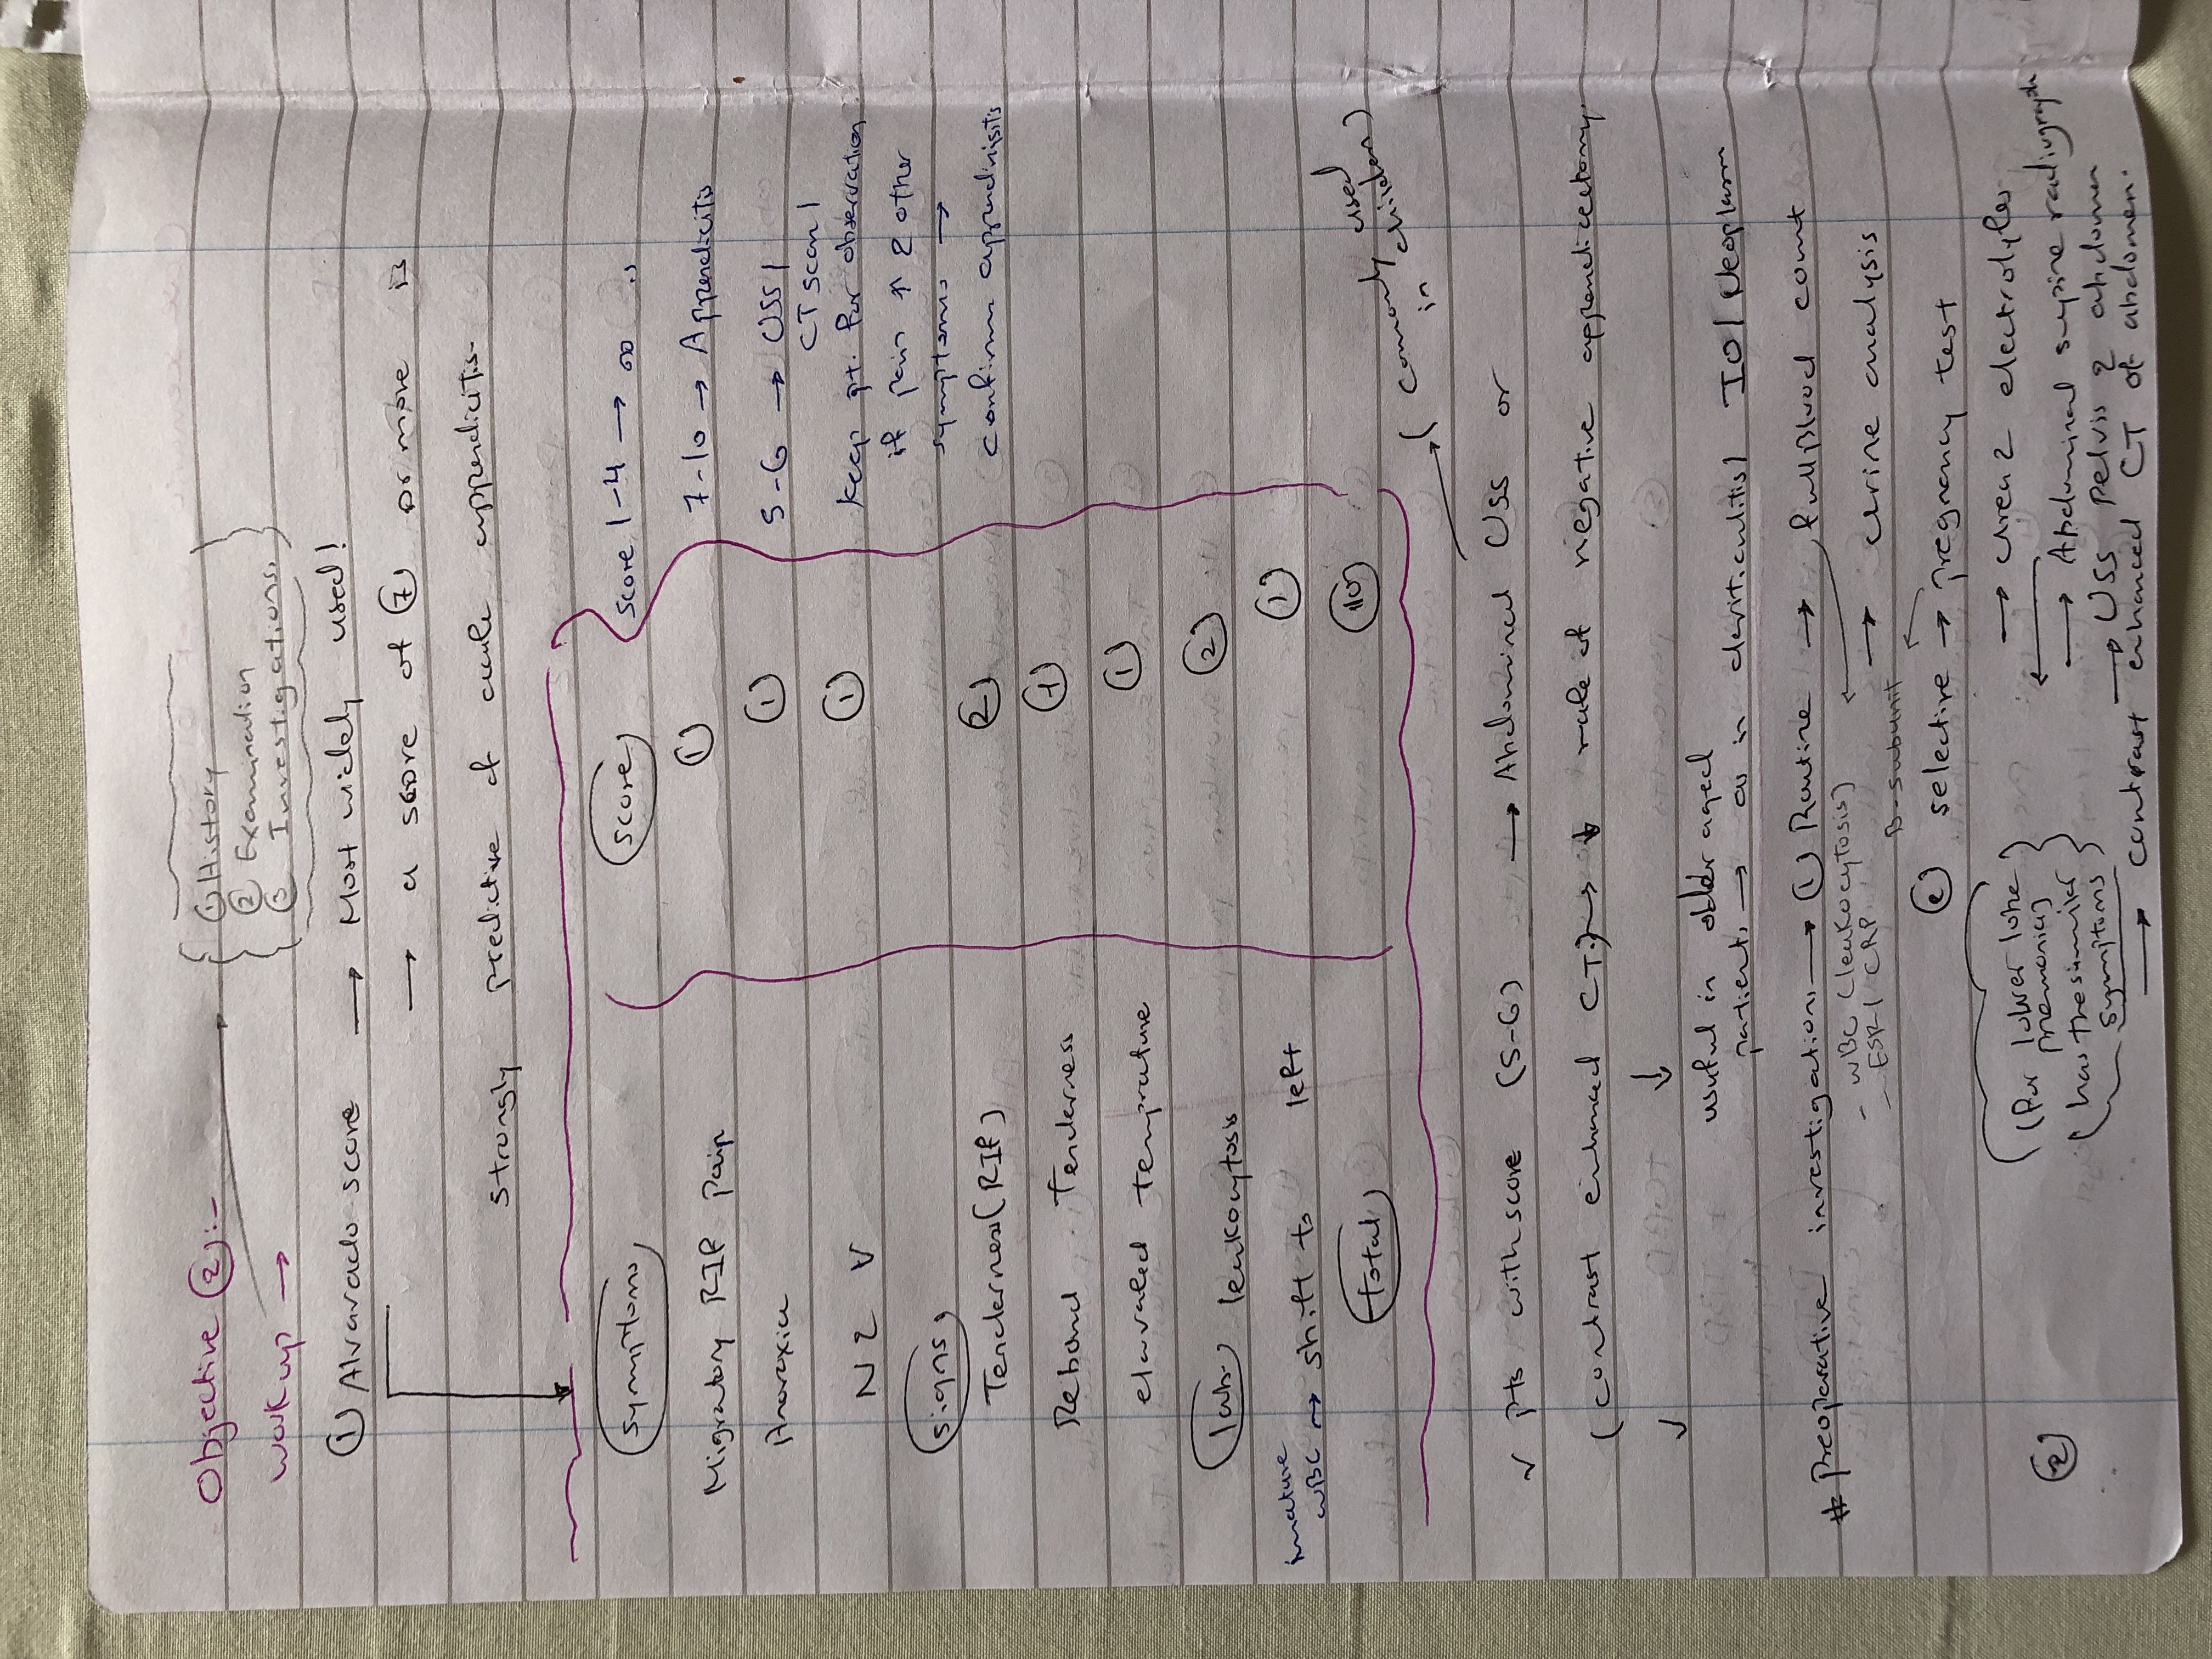 Objective ②:-
workup →
① History
② Examination
③ Investigations.
① Alvarado score → Most widely used!
→ a score of ⑦ or more is
strongly predictive of acute appendicitis.
Symptoms
Score
Score 1-4 →
Migratory RIF pain ①
7-10 → Appendicitis
Anorexia ①
5-6 → USS/
CT scan/
N & V ①
Keep pt. for observation
if pain ↑ & other
symptoms →
confirm appendinisitis
Signs
Tenderness (RIF) ②
Rebound Tenderness ①
elavated temprature ①
labs leukocytosis ②
imature
WBC → shift to left ①
Total ⑩
(Commonly used
in chiildren)
✓ pts with score (5-6) → Abdominal USS or
(contrast enhanced CT) → ↓ rate of negative appendicectomy
↓
✓ useful in older aged
patients → as in divirticulitis/ IO/ Neoplasm
# Preoperative investigations → ① Routine → fullblood count
- WBC (leukocytosis)
- ESR/ CRP
→ urine analysis
B-subunit
② selective → pregnancy test
→ urea & electrolytes
(for lower lobe
pnemonia)
has the similer
symptoms
→ Abdominal supine radiograph
→ USS pelvis & abdomen
→ contrast enhanced CT of abdomen.
②